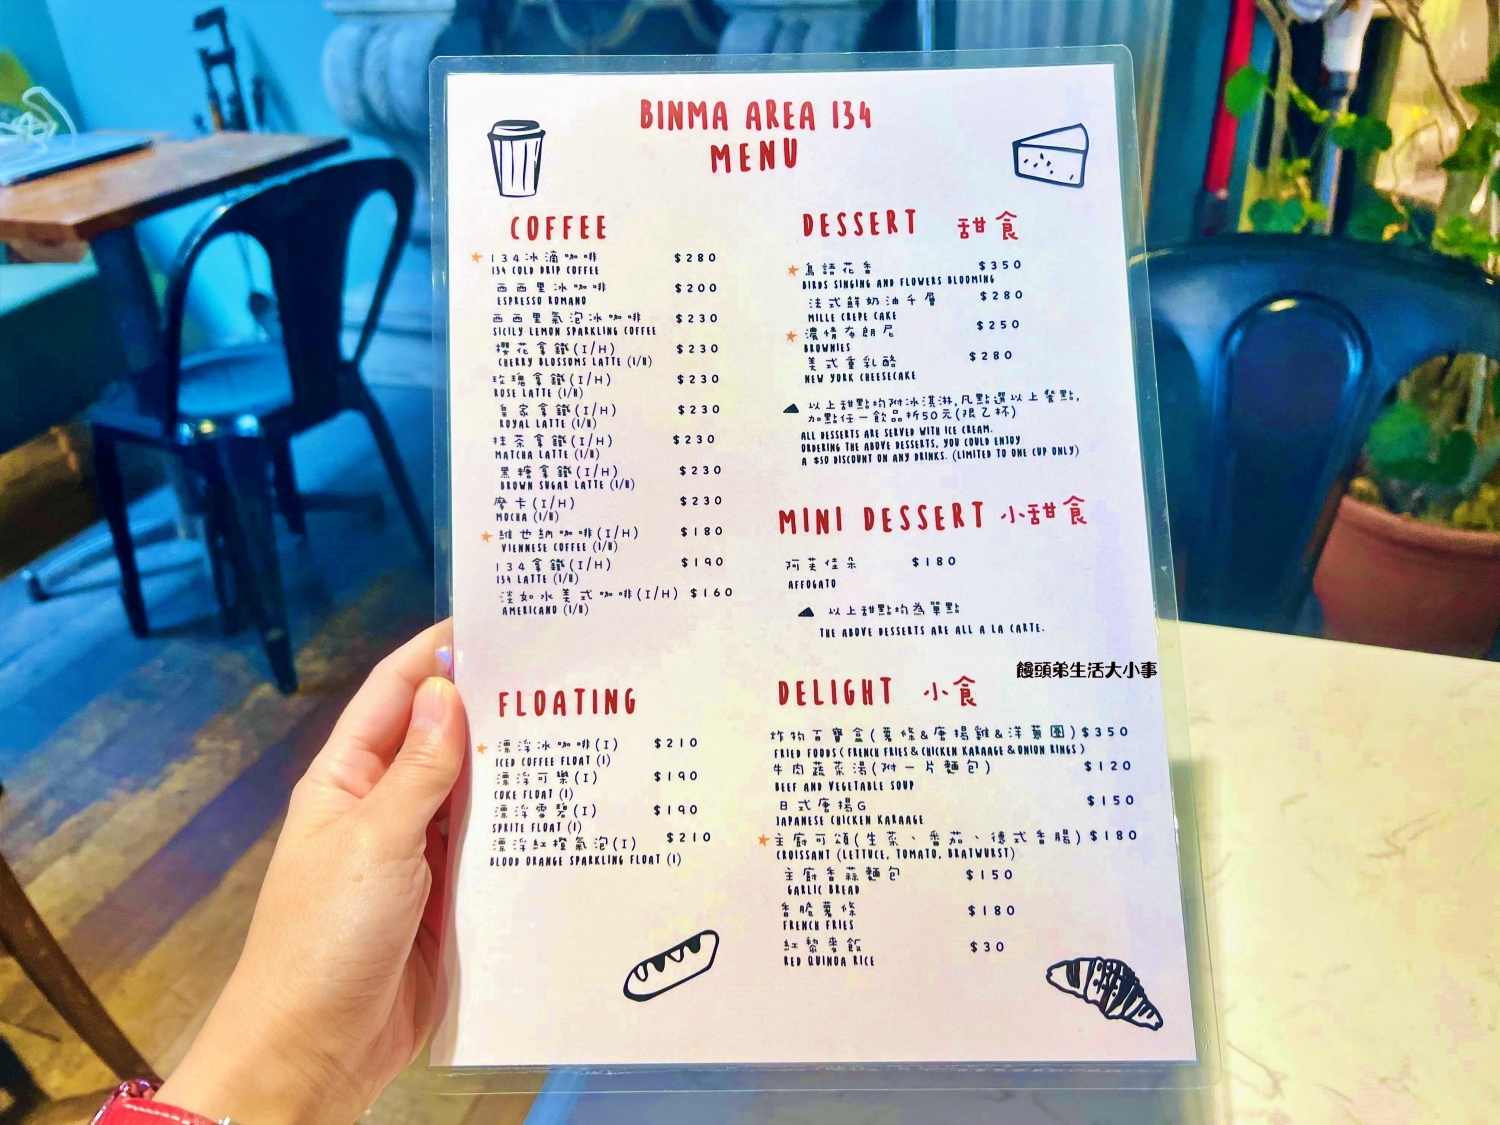 BINMA AREA 134
MENU
COFFEE
134冰滴咖啡 $280
134 COLD DRIP COFFEE
西西里冰咖啡 $200
ESPRESSO ROMANO
西西里氣泡冰咖啡 $230
SICILY LEMON SPARKLING COFFEE
櫻花拿鐵(I/H) $230
CHERRY BLOSSOMS LATTE (I/H)
玫瑰拿鐵(I/H) $230
ROSE LATTE (I/H)
皇家拿鐵(I/H) $230
ROYAL LATTE (I/H)
抹茶拿鐵(I/H) $230
MATCHA LATTE (I/H)
黑糖拿鐵(I/H) $230
BROWN SUGAR LATTE (I/H)
摩卡(I/H) $230
MOCHA (I/H)
維也納咖啡(I/H) $180
VIENNESE COFFEE (I/H)
134拿鐵(I/H) $190
134 LATTE (I/H)
淡如水美式咖啡(I/H) $160
AMERICANO (I/H)
FLOATING
漂浮冰咖啡(I) $210
ICED COFFEE FLOAT (I)
漂浮可樂(I) $190
COKE FLOAT (I)
漂浮雪碧(I) $190
SPRITE FLOAT (I)
漂浮紅橙氣泡(I) $210
BLOOD ORANGE SPARKLING FLOAT (I)
DESSERT 甜食
鳥語花香 $350
BIRDS SINGING AND FLOWERS BLOOMING
法式鮮奶油千層 $280
MILLE CREPE CAKE
濃情布朗尼 $250
BROWNIES
美式重乳酪 $280
NEW YORK CHEESECAKE
以上甜點均附冰淇淋,凡點選以上餐點,
加點任一飲品折50元(限乙杯)
ALL DESSERTS ARE SERVED WITH ICE CREAM.
ORDERING THE ABOVE DESSERTS, YOU COULD ENJOY
A $50 DISCOUNT ON ANY DRINKS. (LIMITED TO ONE CUP ONLY)
MINI DESSERT 小甜食
阿芙佳朵 $180
AFFOGATO
以上甜點均為單點
THE ABOVE DESSERTS ARE ALL A LA CARTE.
饅頭弟生活大小事
DELIGHT 小食
炸物百寶盒(薯條&唐揚雞&洋蔥圈) $350
FRIED FOODS ( FRENCH FRIES & CHICKEN KARAAGE & ONION RINGS )
牛肉蔬菜湯(附一片麵包) $120
BEEF AND VEGETABLE SOUP
日式唐揚G $150
JAPANESE CHICKEN KARAAGE
主廚可頌(生菜、番茄、德式香腸) $180
CROISSANT (LETTUCE, TOMATO, BRATWURST)
主廚香蒜麵包 $150
GARLIC BREAD
香脆薯條 $180
FRENCH FRIES
紅藜麥飯 $30
RED QUINOA RICE